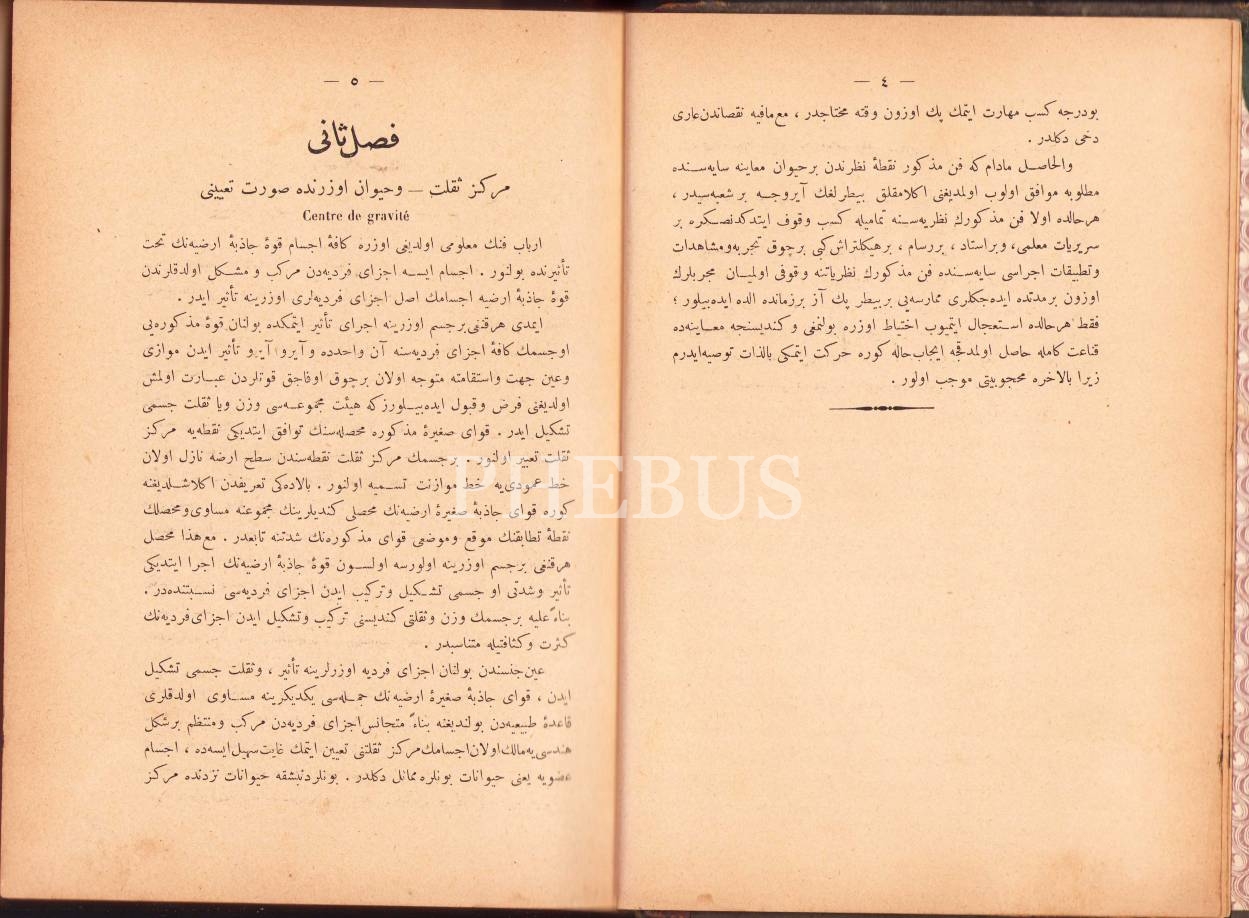 — ٤ —
بودرجه كسب مهارت ايتمك پك اوزون وقته محتاجدر ، مع مافيه نقصاندن عارى
دخى دكلدر .
والحاصل مادام كه فن مذكور نقطۀ نظرندن برحيوان معاينه سايه سنده
مطلوبه موافق اولوب اولمديغنى اكلامقلق بيطرلغك آيروجه برشعبه سيدر ،
هرحالده اولا فن مذكورك نظريه سنه تماميله كسب وقوف ايتدكدنصكره بر
سريريات معلمى، وبراستاد ، بررسام ، برهيكلتراش كبى برچوق تجربه ومشاهدات
وتطبيقات اجراسى سايه سنده فن مذكورك نظرياتنه وقوفى اولميان مجربلرك
اوزون برمدتده ايده جكلرى ممارسه يى بربيطر پك آز برزمانده الده ايده بيلور ؛
فقط هرحالده استعجال ايتميوب احتياط اوزره بولنمغى وكنديسنجه معاينه ده
قناعت كامله حاصل اولمدقجه ايجاب حاله كوره حركت ايتمكى بالذات توصيه ايدرم
زيرا بالاخره محجوبيتى موجب اولور .
— ٥ —
فصل ثانى
مركز ثقلت — وحيوان اوزرنده صورت تعيينى
Centre de gravité
ارباب فنك معلومى اولديغى اوزره كافۀ اجسام قوۀ جاذبۀ ارضيه نك تحت
تأثيرنده بولنور . اجسام ايسه اجزاى فرديه دن مركب و مشكل اولدقلرندن
قوۀ جاذبۀ ارضيه اجسامك اصل اجزاى فرديه لرى اوزرينه تأثير ايدر .
ايمدى هرقنغى برجسم اوزرينه اجراى تأثير ايتمكده بولنان قوۀ مذكوره يى
اوجسمك كافۀ اجزاى فرديه سنه آن واحدده و آيرو آيرو تأثير ايدن موازى
وعين جهت واستقامته متوجه اولان برچوق اوفاجق قوتلردن عبارت اولمش
اولديغنى فرض وقبول ايده بيلورزكه هيئت مجموعه سى وزن ويا ثقلت جسمى
تشكيل ايدر . قواى صغيرۀ مذكوره محصله سنك توافق ايتديكى نقطه يه مركز
ثقلت تعبير اولنور . برجسمك مركز ثقلت نقطه سندن سطح ارضه نازل اولان
خط عمودى يه خط موازنت تسميه اولنور . بالاده كى تعريفدن اكلاشلديغنه
كوره قواى جاذبۀ صغيرۀ ارضيه نك محصلى كنديلرينك مجموعنه مساوى ومحصلك
نقطۀ تطابقنك موقع وموضعى قواى مذكوره نك شدتنه تابعدر . مع هذا محصل
هرقنغى برجسم اوزرينه اولورسه اولسون قوۀ جاذبۀ ارضيه نك اجرا ايتديكى
تأثير وشدتى او جسمى تشكيل وتركيب ايدن اجزاى فرديه سى نسبتنده در .
بناءً عليه برجسمك وزن وثقلتى كنديسنى تركيب وتشكيل ايدن اجزاى فرديه نك
كثرت وكثافتيله متناسبدر .
عين جنسندن بولنان اجزاى فرديه اوزرلرينه تأثير ، وثقلت جسمى تشكيل
ايدن ، قواى جاذبۀ صغيرۀ ارضيه نك جمله سى يكديكرينه مساوى اولدقلرى
قاعدۀ طبيعيه دن بولنديغنه بناءً متجانس اجزاى فرديه دن مركب ومنتظم برشكل
هندسى يه مالك اولان اجسامك مركز ثقلتنى تعيين ايتمك غايت سهيل ايسه ده ، اجسام
عضويه يعنى حيوانات بونلره مماثل دكلدر . بونلردنبشقه حيوانات نزدنده مركز
PHEBUS